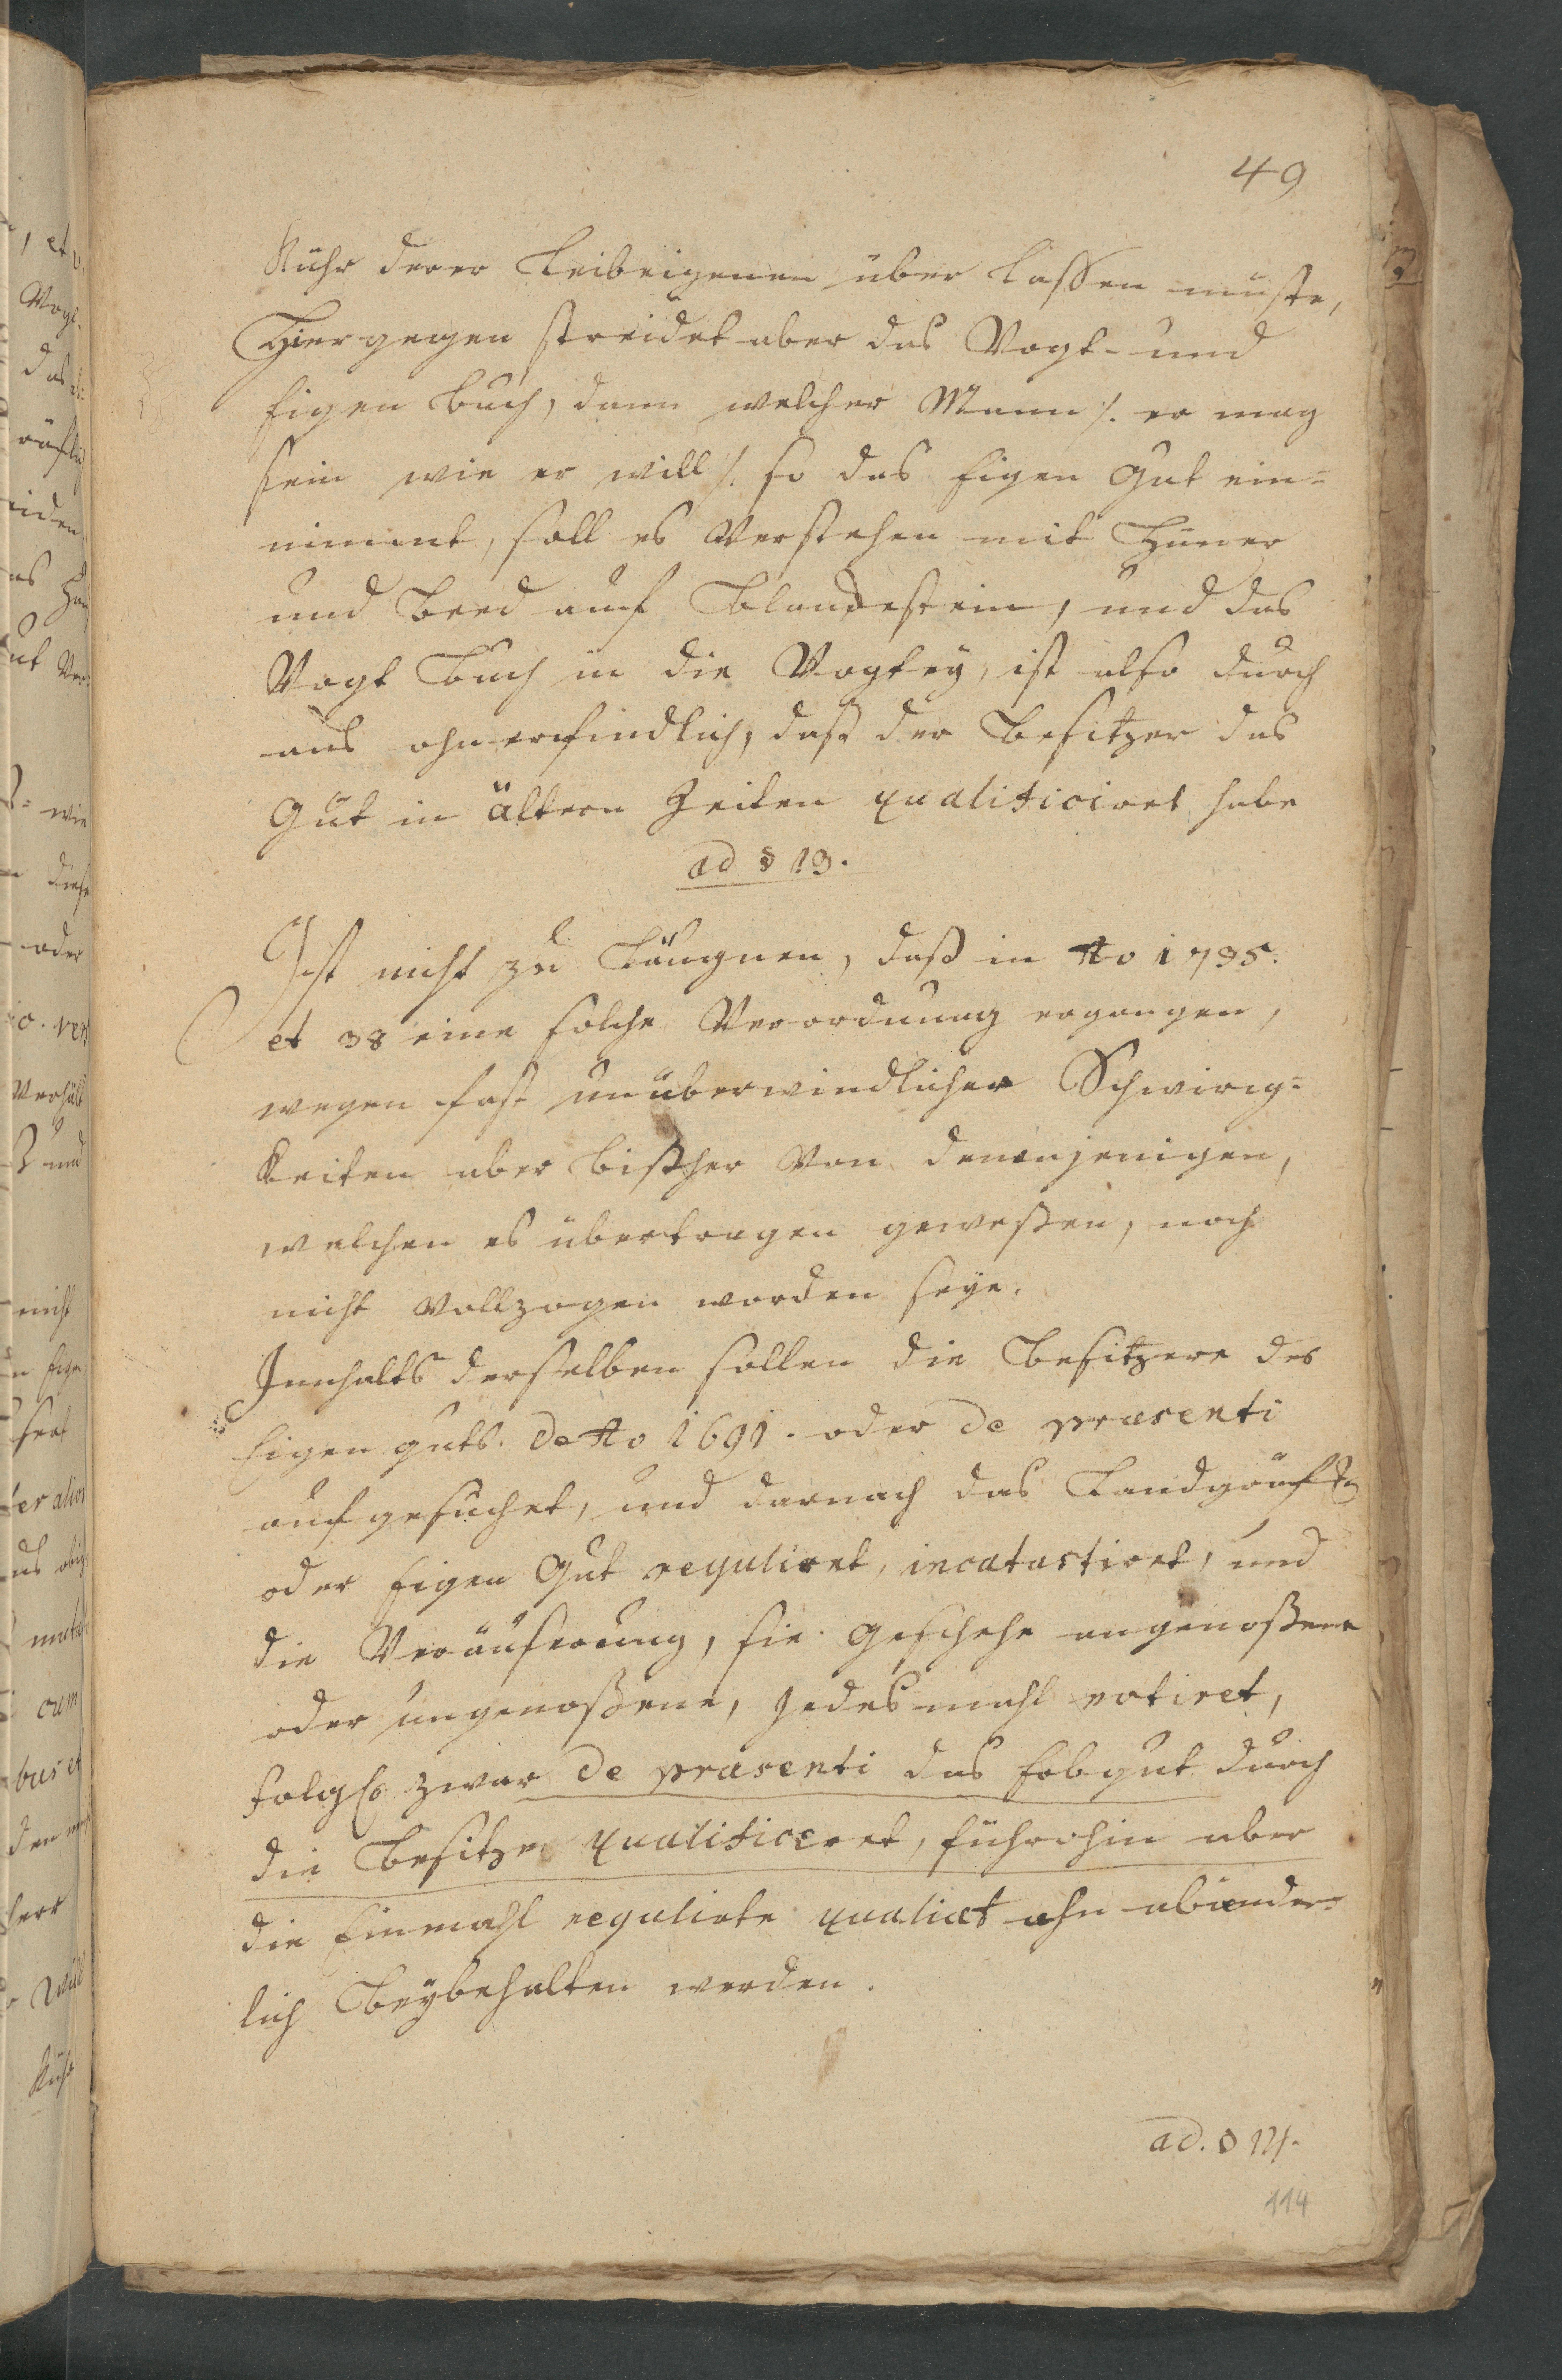 49
Kühr derer Leibeigenen über lassen müste,
Hiergegen streidet aber das Vogt- und
Eigen Buch, dann welcher Mann /: er mag
sein wie er will /: so das Eigen Gut ein=
nimmt, soll es Verstehen mit Hüner
und Beed auf Blanckestein, und das
Vogt Buch in die Vogtey, ist also durch
aus ohnerfindlich, daß der Besitzer das
Gut in ältern Zeiten qualificiret habe
ad § 13.
Ist nicht zu Läugnen, daß in Ao 1735.
et 38 eine solche Verordnung ergangen,
wegen fast unüberwindlicher Schwirig=
keiten aber bißher Von denenjenigen,
welchen es übertragen geweßen, noch
nicht Vollzogen worden seye.
Innhalts derselben sollen die Besitzere des
Eigen guts. de Ao 1691. oder de præsenti
aufgesuchet, und darnach das Landgräufl.
oder Eigen Gut reguliret, incatastiret, und
die Veräuserung, sie geschehe angenoßene
oder ungenoßene, Jedesmahl notiret,
folgl. zwar de præsenti das Erbgut durch
die Besitzer qualificeret, führohin aber
die Einmahl regulirte qualiæt ohn abänder=
lich Beybehalten werden.
ad. § 14.
114